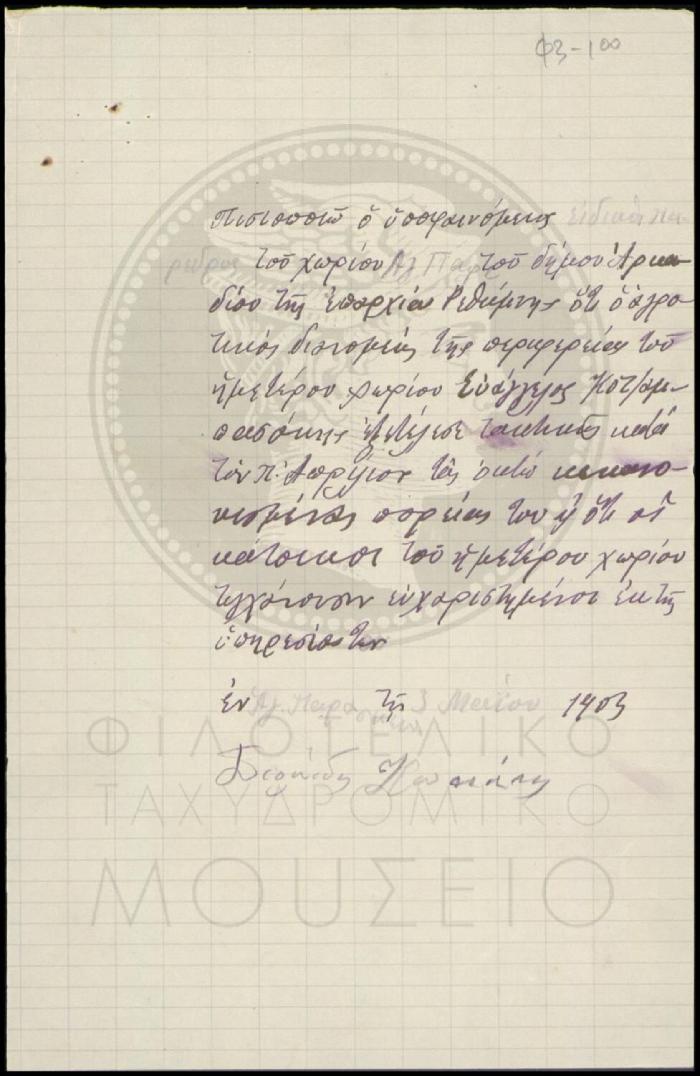 Φ3-100
πιστοποιῶ ὁ ὑποφαινόμενος εἰδικὸς πα
ρεδρος τοῦ χωρίου Ἁγ Παρ τοῦ δήμου Ἀρκα
δίου τῆς ἐπαρχίας Ρεθύμνης ὅτι ὁ ἀγρο
τικός διανομεύς τῆς περιφερείας τοῦ
ἡμετέρου χωρίου Εὐάγγελος Κοτζαμ
πασάκης ἐξετέλεσε τακτικῶς κατά
τὸν π. Ἀπρίλιον τὰς ὀκτώ κεκανο
νισμένας πορείας του ὅτι οἱ
κάτοικοι τοῦ ἡμετέρου χωρίου
τυγχάνουσιν εὐχαριστημένοι ἐκ τῆς
ὑπηρεσίας των
ἐν Ἁγ. Παρα τῇ 3 Μαΐου 1903
σκευὴ
ΦΙΛΟΤΕΛΙΚΟ
ΤΑΧΥΔΡΟΜΙΚΟ
ΜΟΥΣΕΙΟ